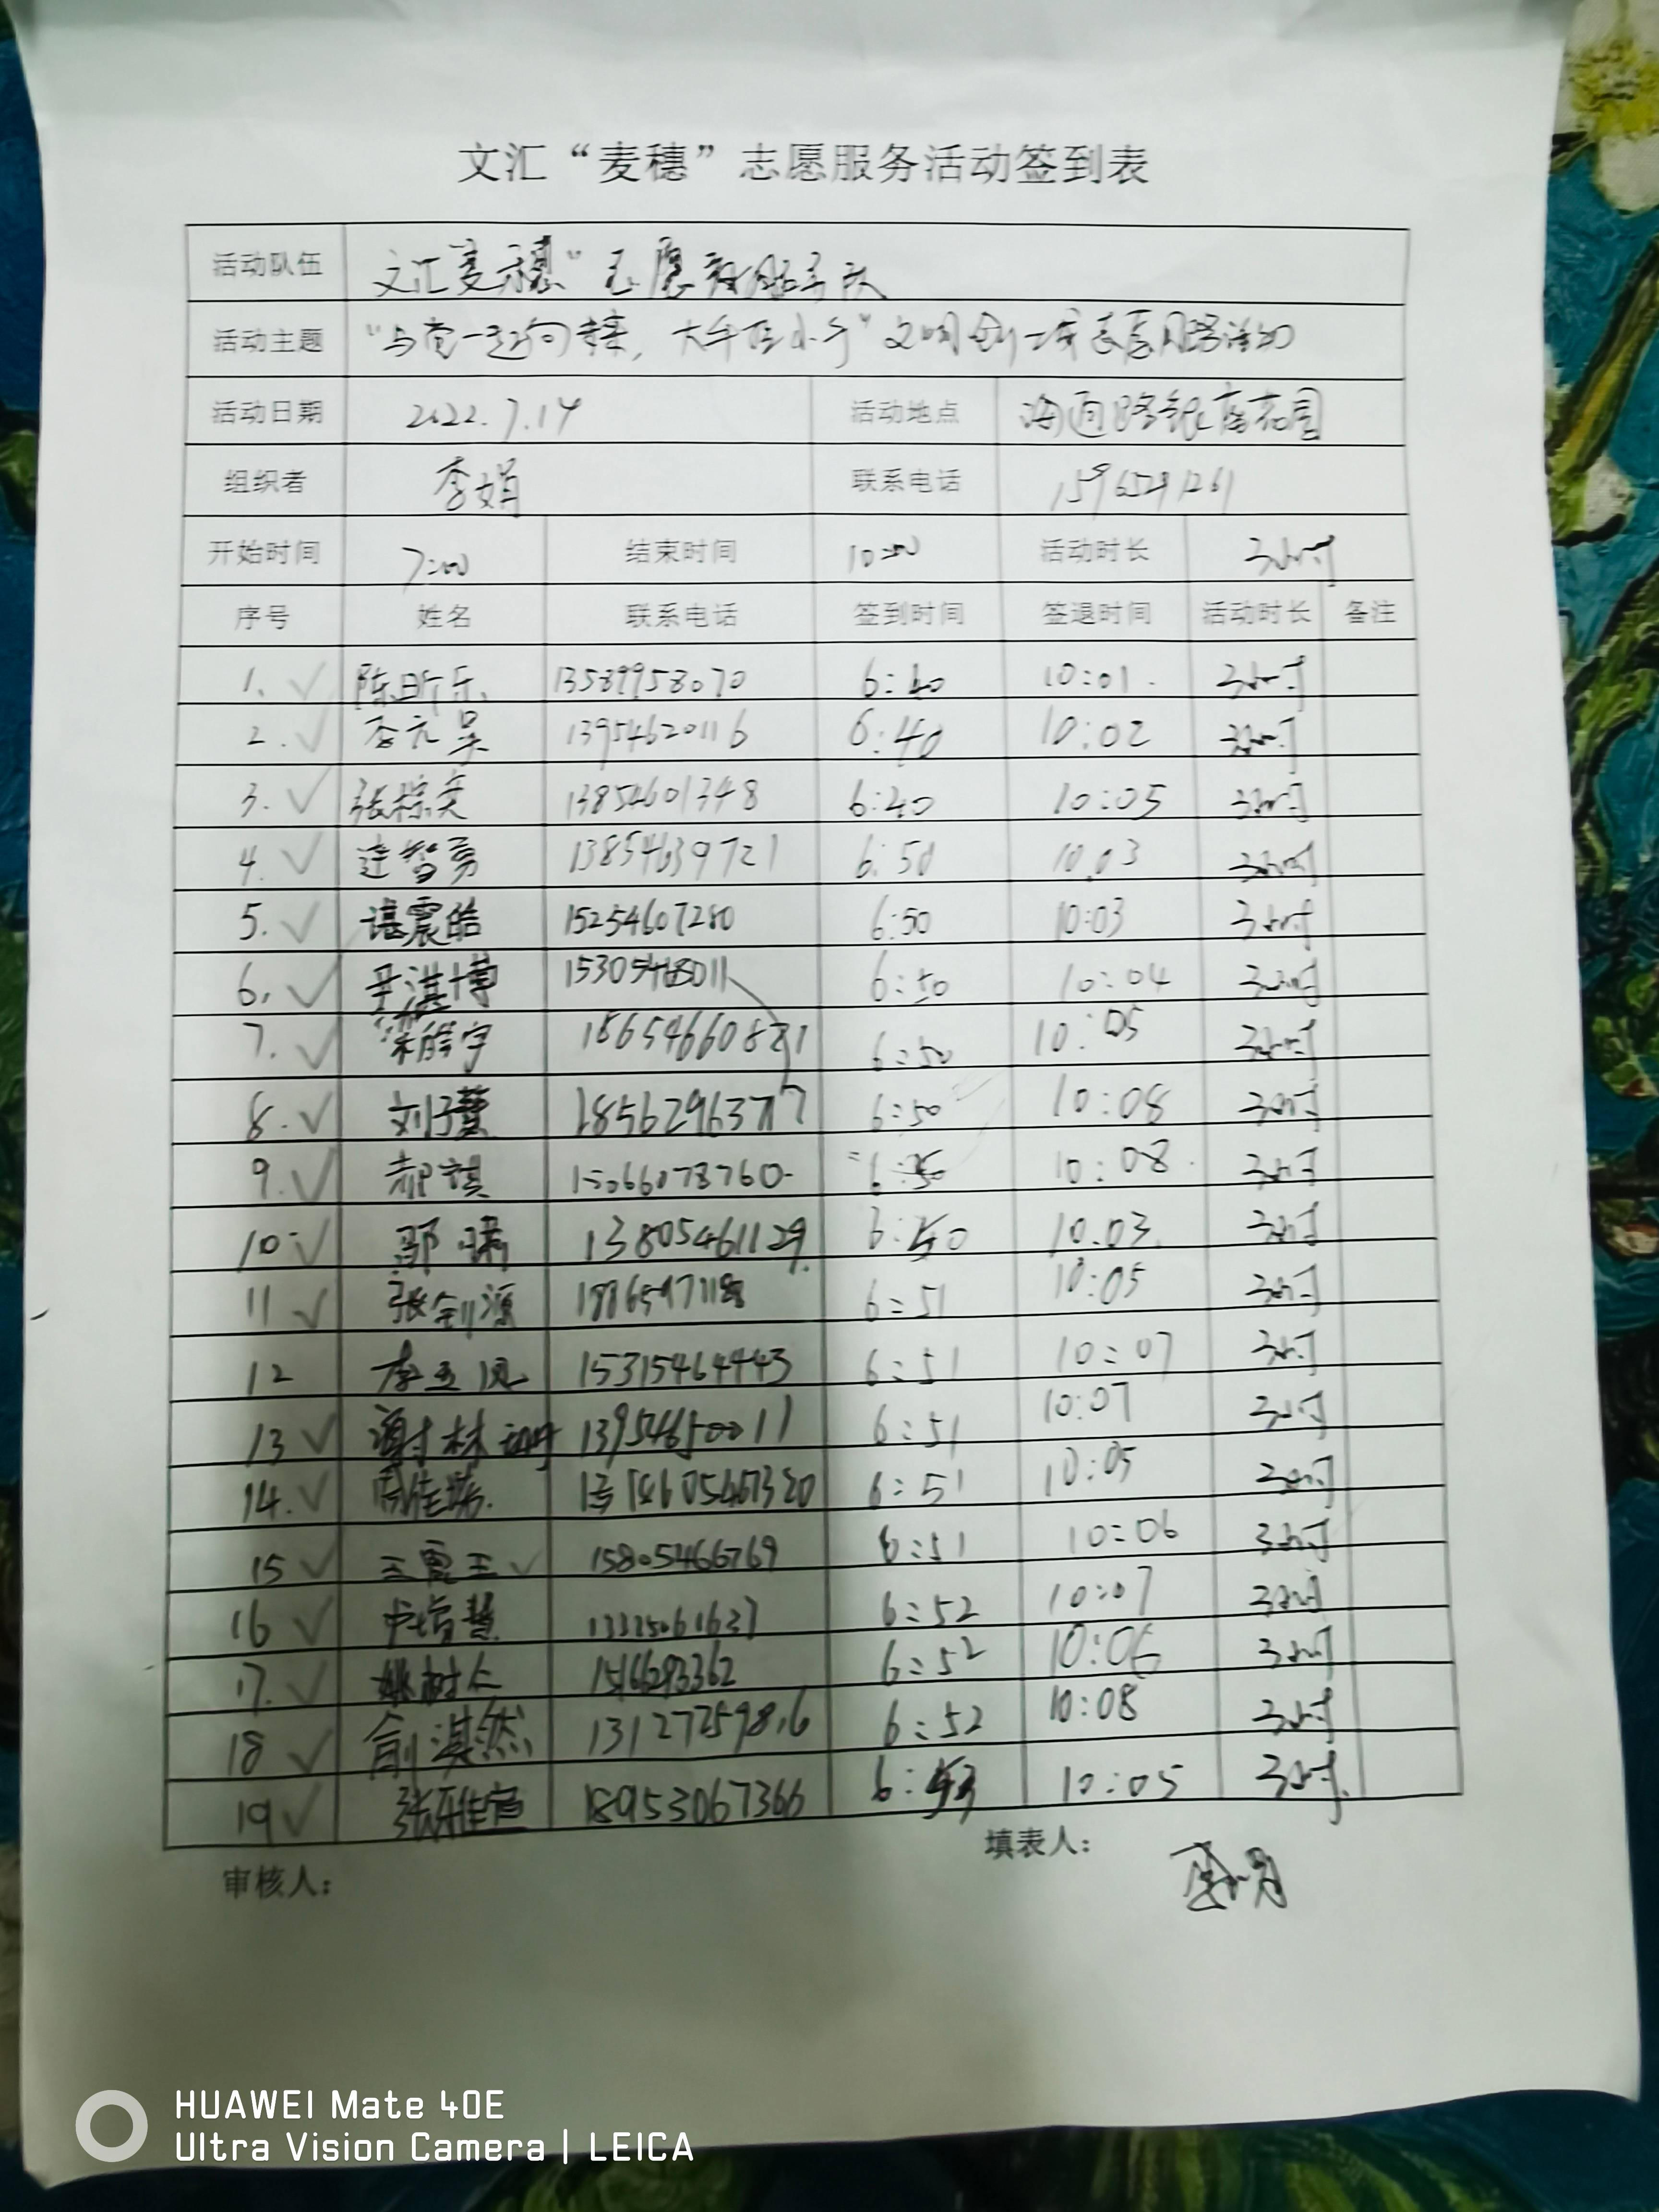 文汇“麦穗”志愿服务活动签到表
活动队伍 文汇麦穗”志愿服务队
活动主题 “与党一起向未来，大手拉小手”文明创城志愿服务活动
活动日期 2022.7.14 活动地点
组织者 李娟 联系电话
开始时间 7:00 结束时间 10:00 活动时长 3小时
序号 姓名 联系电话 签到时间 签退时间 活动时长 备注
1. 陈昕乐 13589958070 6:40 10:01. 3小时
2. 李元昊 13954620116 6:40 10:02 3小时
3. 张棕奕 13854601348 6:40 10:05 3小时
4. 逄智勇 13854639721 6:50 10.03 3小时
5. 谌震皓 15254607280 6:50 10:03 3小时
6. 15305468011 6:50 10:04 3小时
7. 18654660821 6:50 10:05 3小时
8. 18562963777 6:50 10:08 3小时
9. 郝祺 15066073760 6:50 10:08. 3小时
10. 13805461129 6:50 10.03. 3小时
11 张钊源 6:51 10:05 3小时
12 李玉凤 15315464443 6:51 10:07 3小时
13 谢林珊 13954650011 6:51 10:07 3小时
14. 6:51 10:05 3小时
15 王霞玉 15805466769 6:51 10:06 3小时
16 6:52 10:07 3小时
17. 姚树仁 6:52 10:06 3小时
18 俞淇然 13127259816 6:52 10:08 3小时
19 张雅宣 18953067366 6:53 10:05 3小时.
审核人： 填表人：
HUAWEI Mate 40E
Ultra Vision Camera | LEICA